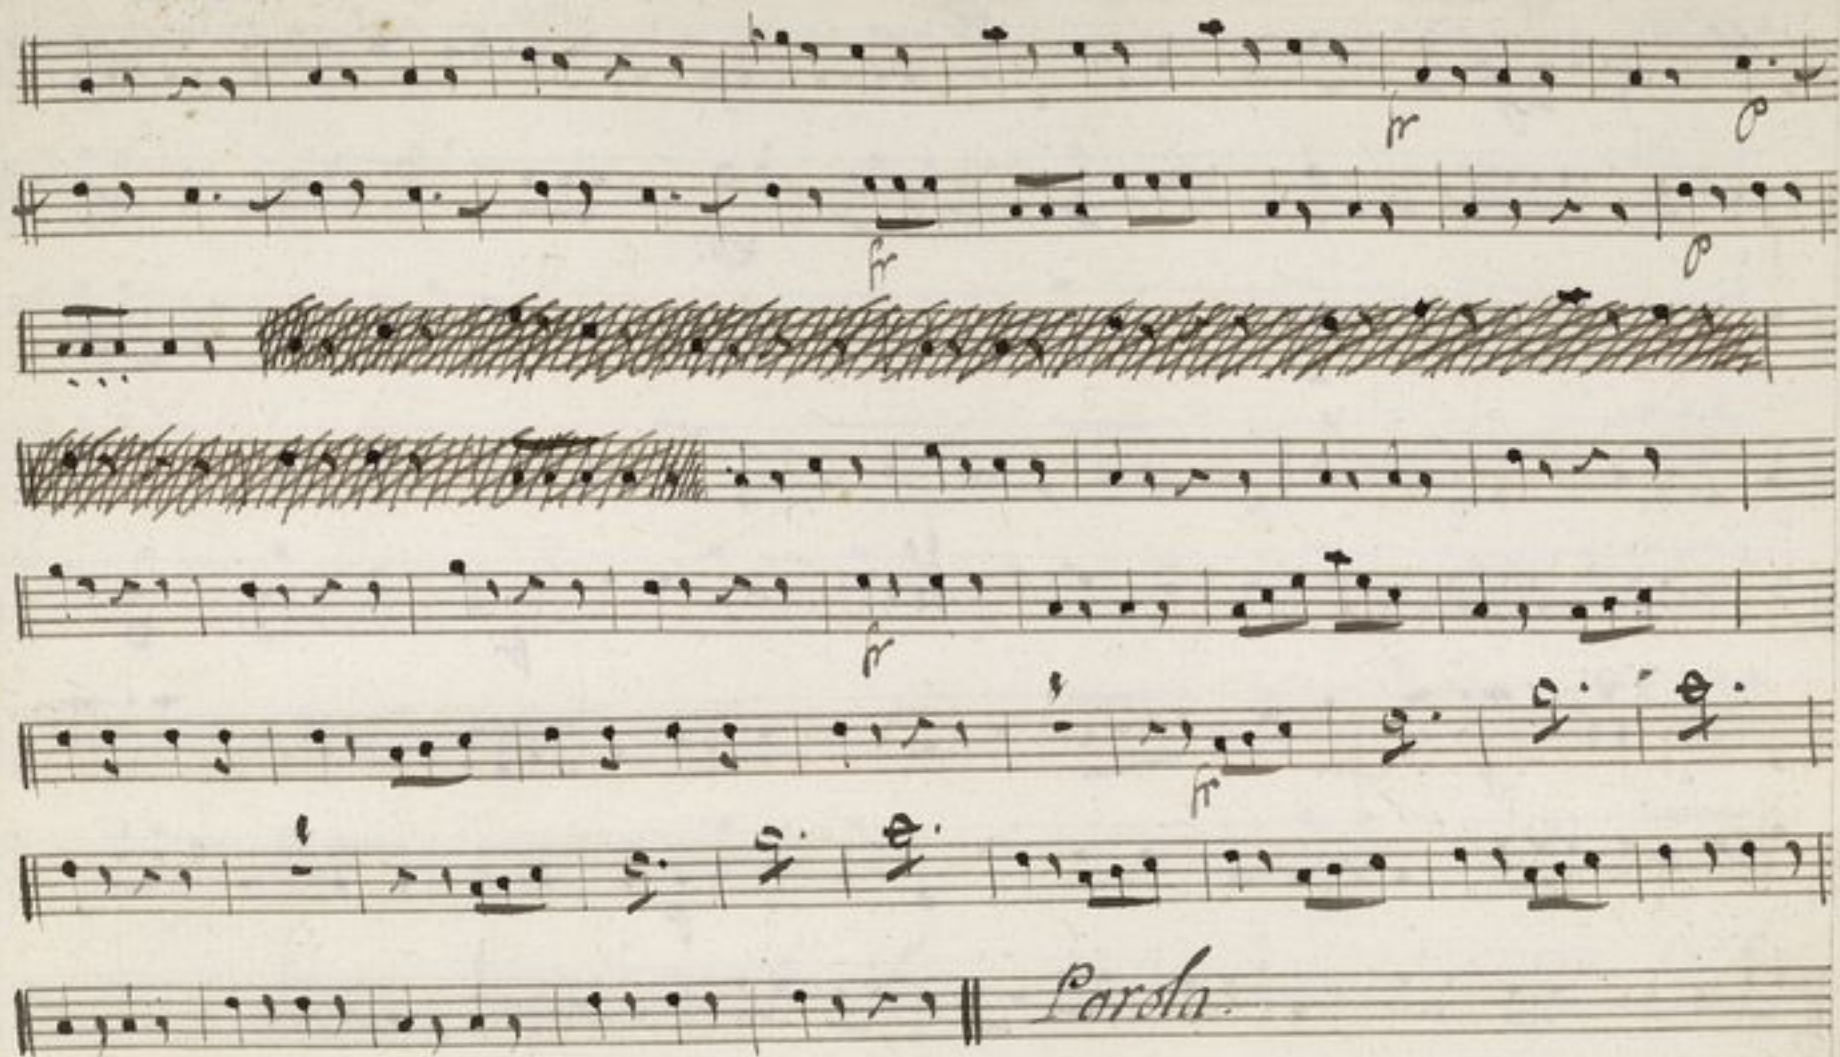 fr p
fr p
fr
fr
Parola.